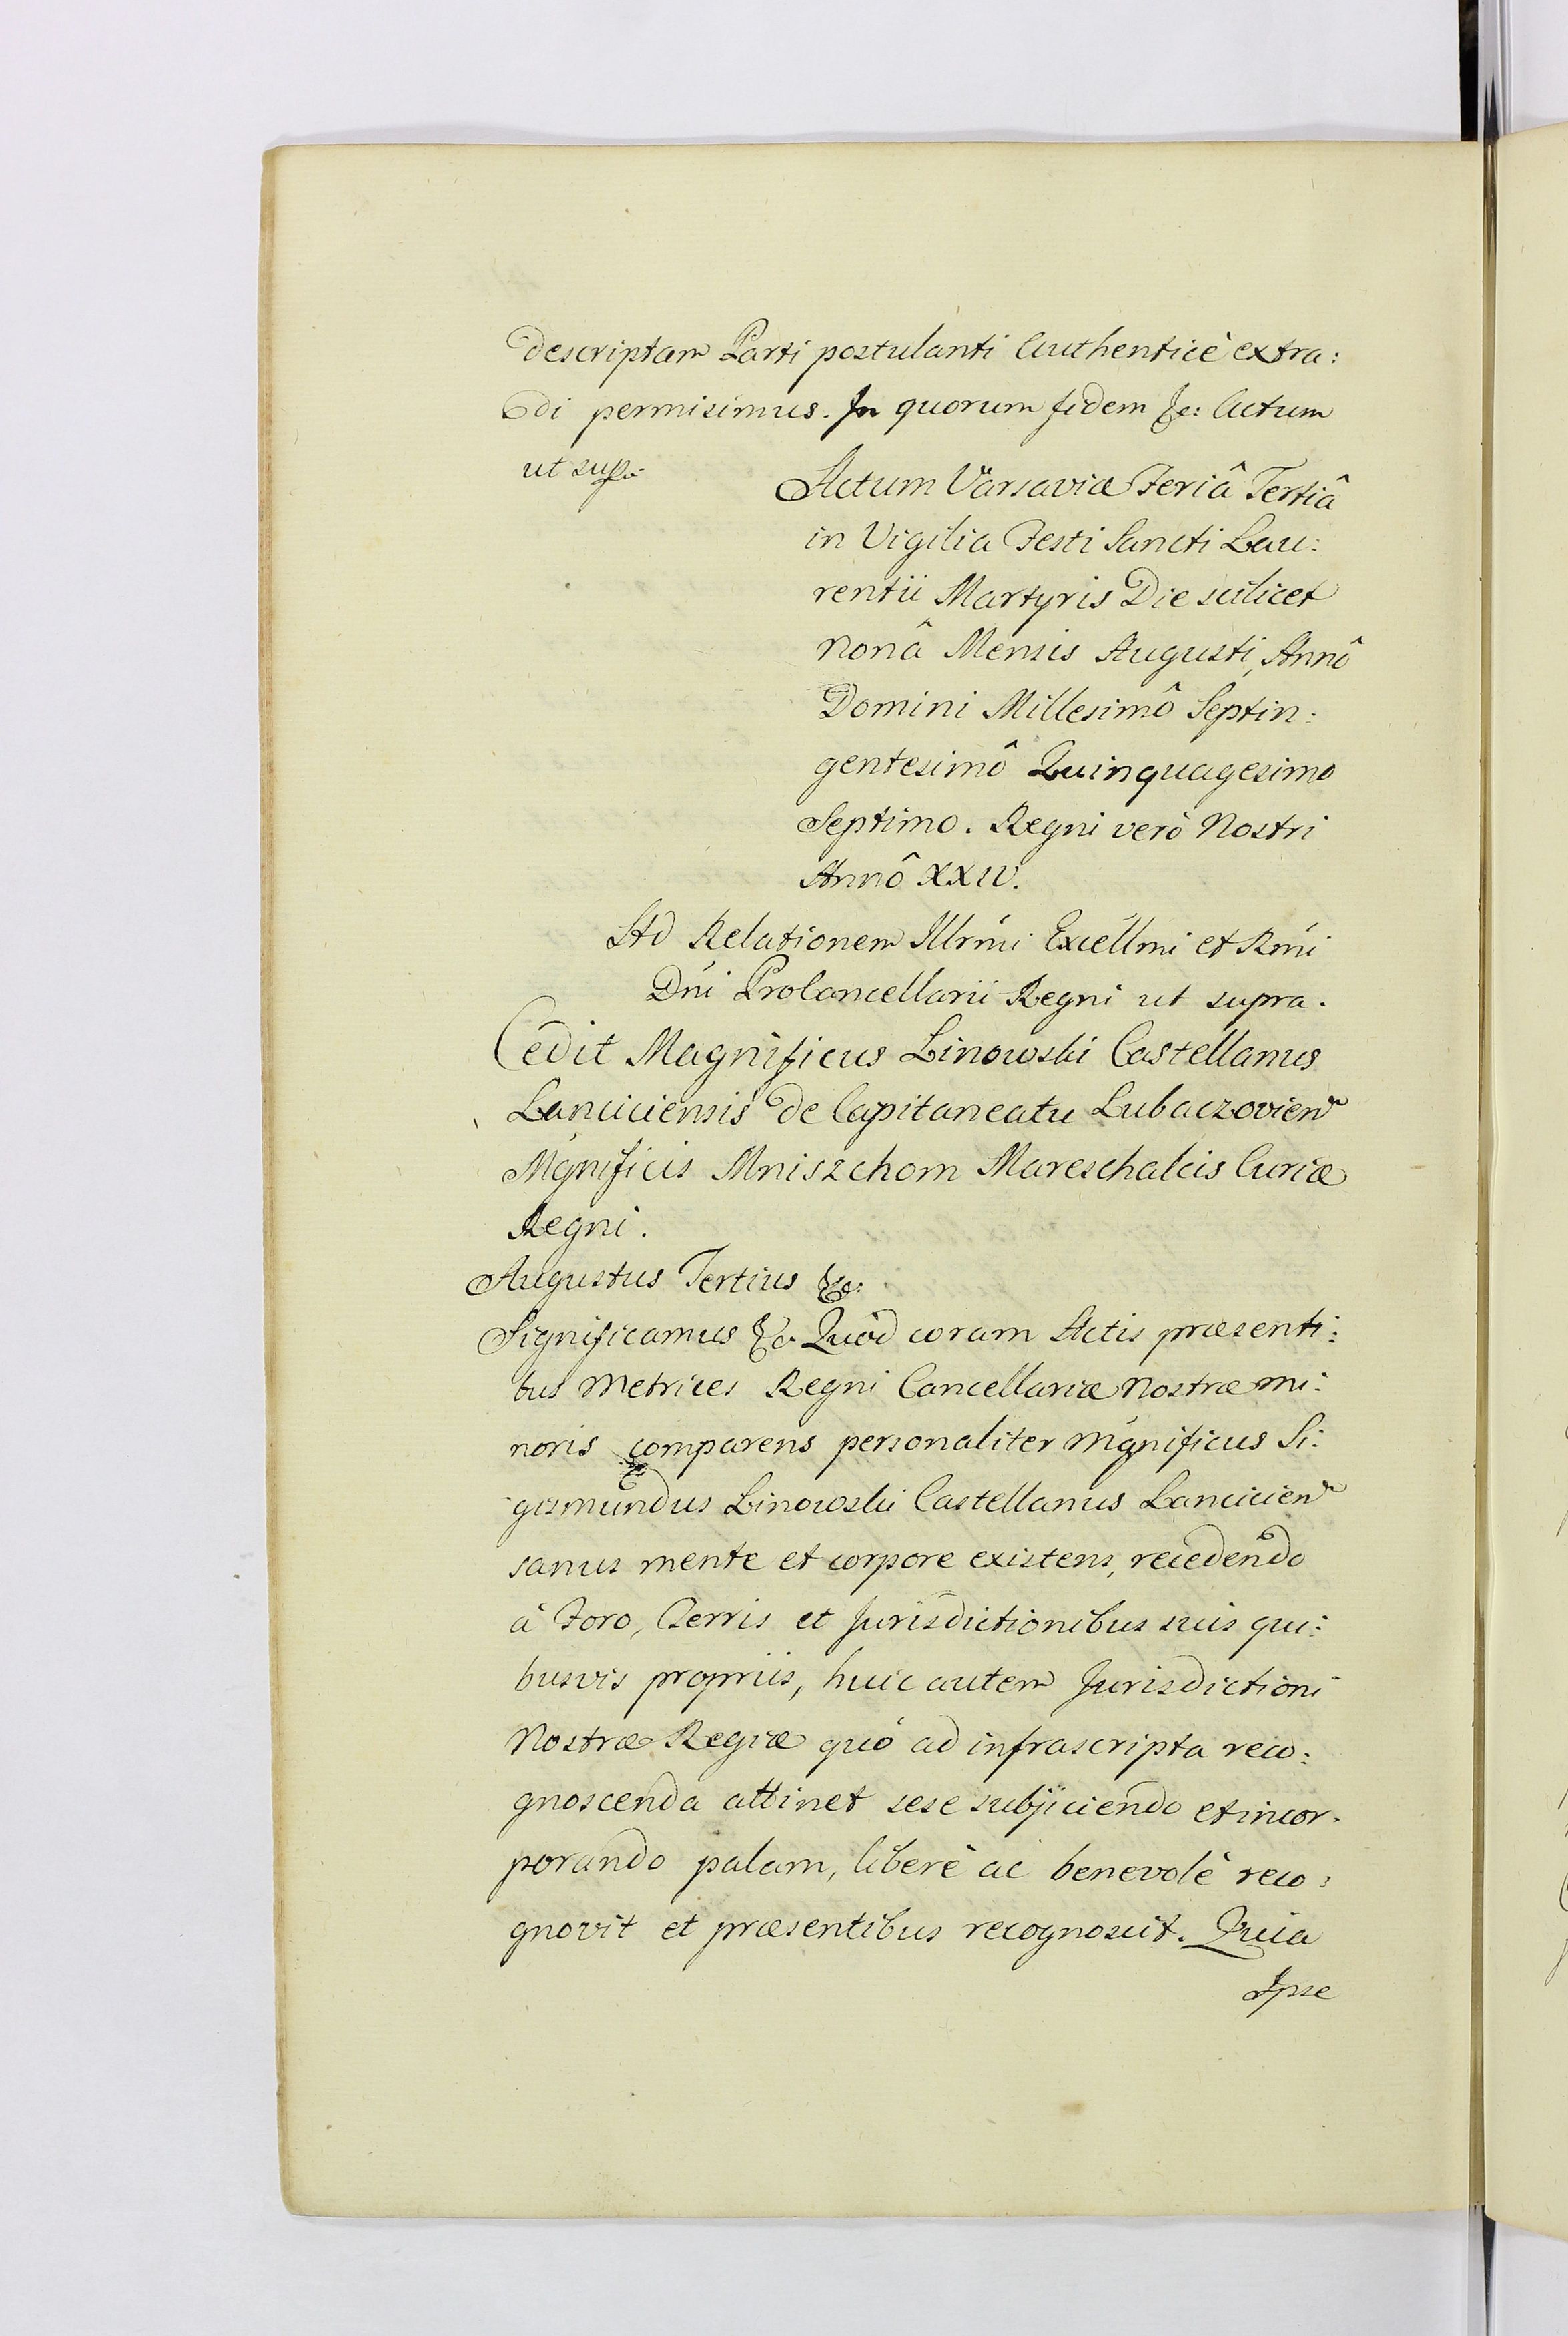 descriptam Parti postulanti Authenticè extra:
di permisimus. In quorum fidem &c: Actum
ut sup.
Actum Varsaviæ Feriâ Tertiâ
in Vigilia Festi Sancti Lau:
rentii Martyris Die scilicet
Nonâ Mensis Augusti, Annô
Domini Millesimô Septin:
gentesimô Quinquagesimo
Septimo. Regni verò Nostri
Annô XXIV.
Ad Relationem Illrmi Excellmi et Rmi
Dni ProCancellarii Regni ut supra.
Cedit Magnificus Linowski Castellanus
Lanciciensis de Capitaneatu Lubaczovien
Mgnificis Mniszchom Mareschalcis Curiæ
Regni.
Augustus Tertius &c:
Significamus &c. Quòd coram Actis præsenti:
bus Metrices Regni Cancellariæ Nostræ mi:
noris comparens personaliter Mgnificus Si:
gismundus Linowski Castellanus Lancicien
sanus mente et corpore existens, recedendo
à Foro, Terris et Jurisdictionibus suis qui:
busvis propriis, huic autem Jurisdictioni
Nostræ Regiæ quò ad infrascripta reco:
gnoscenda attinet sese subjiciendo et incor.
porando palam, liberè ac benevolè reco:
gnovit et præsentibus recognoscit. Quia
Ipse